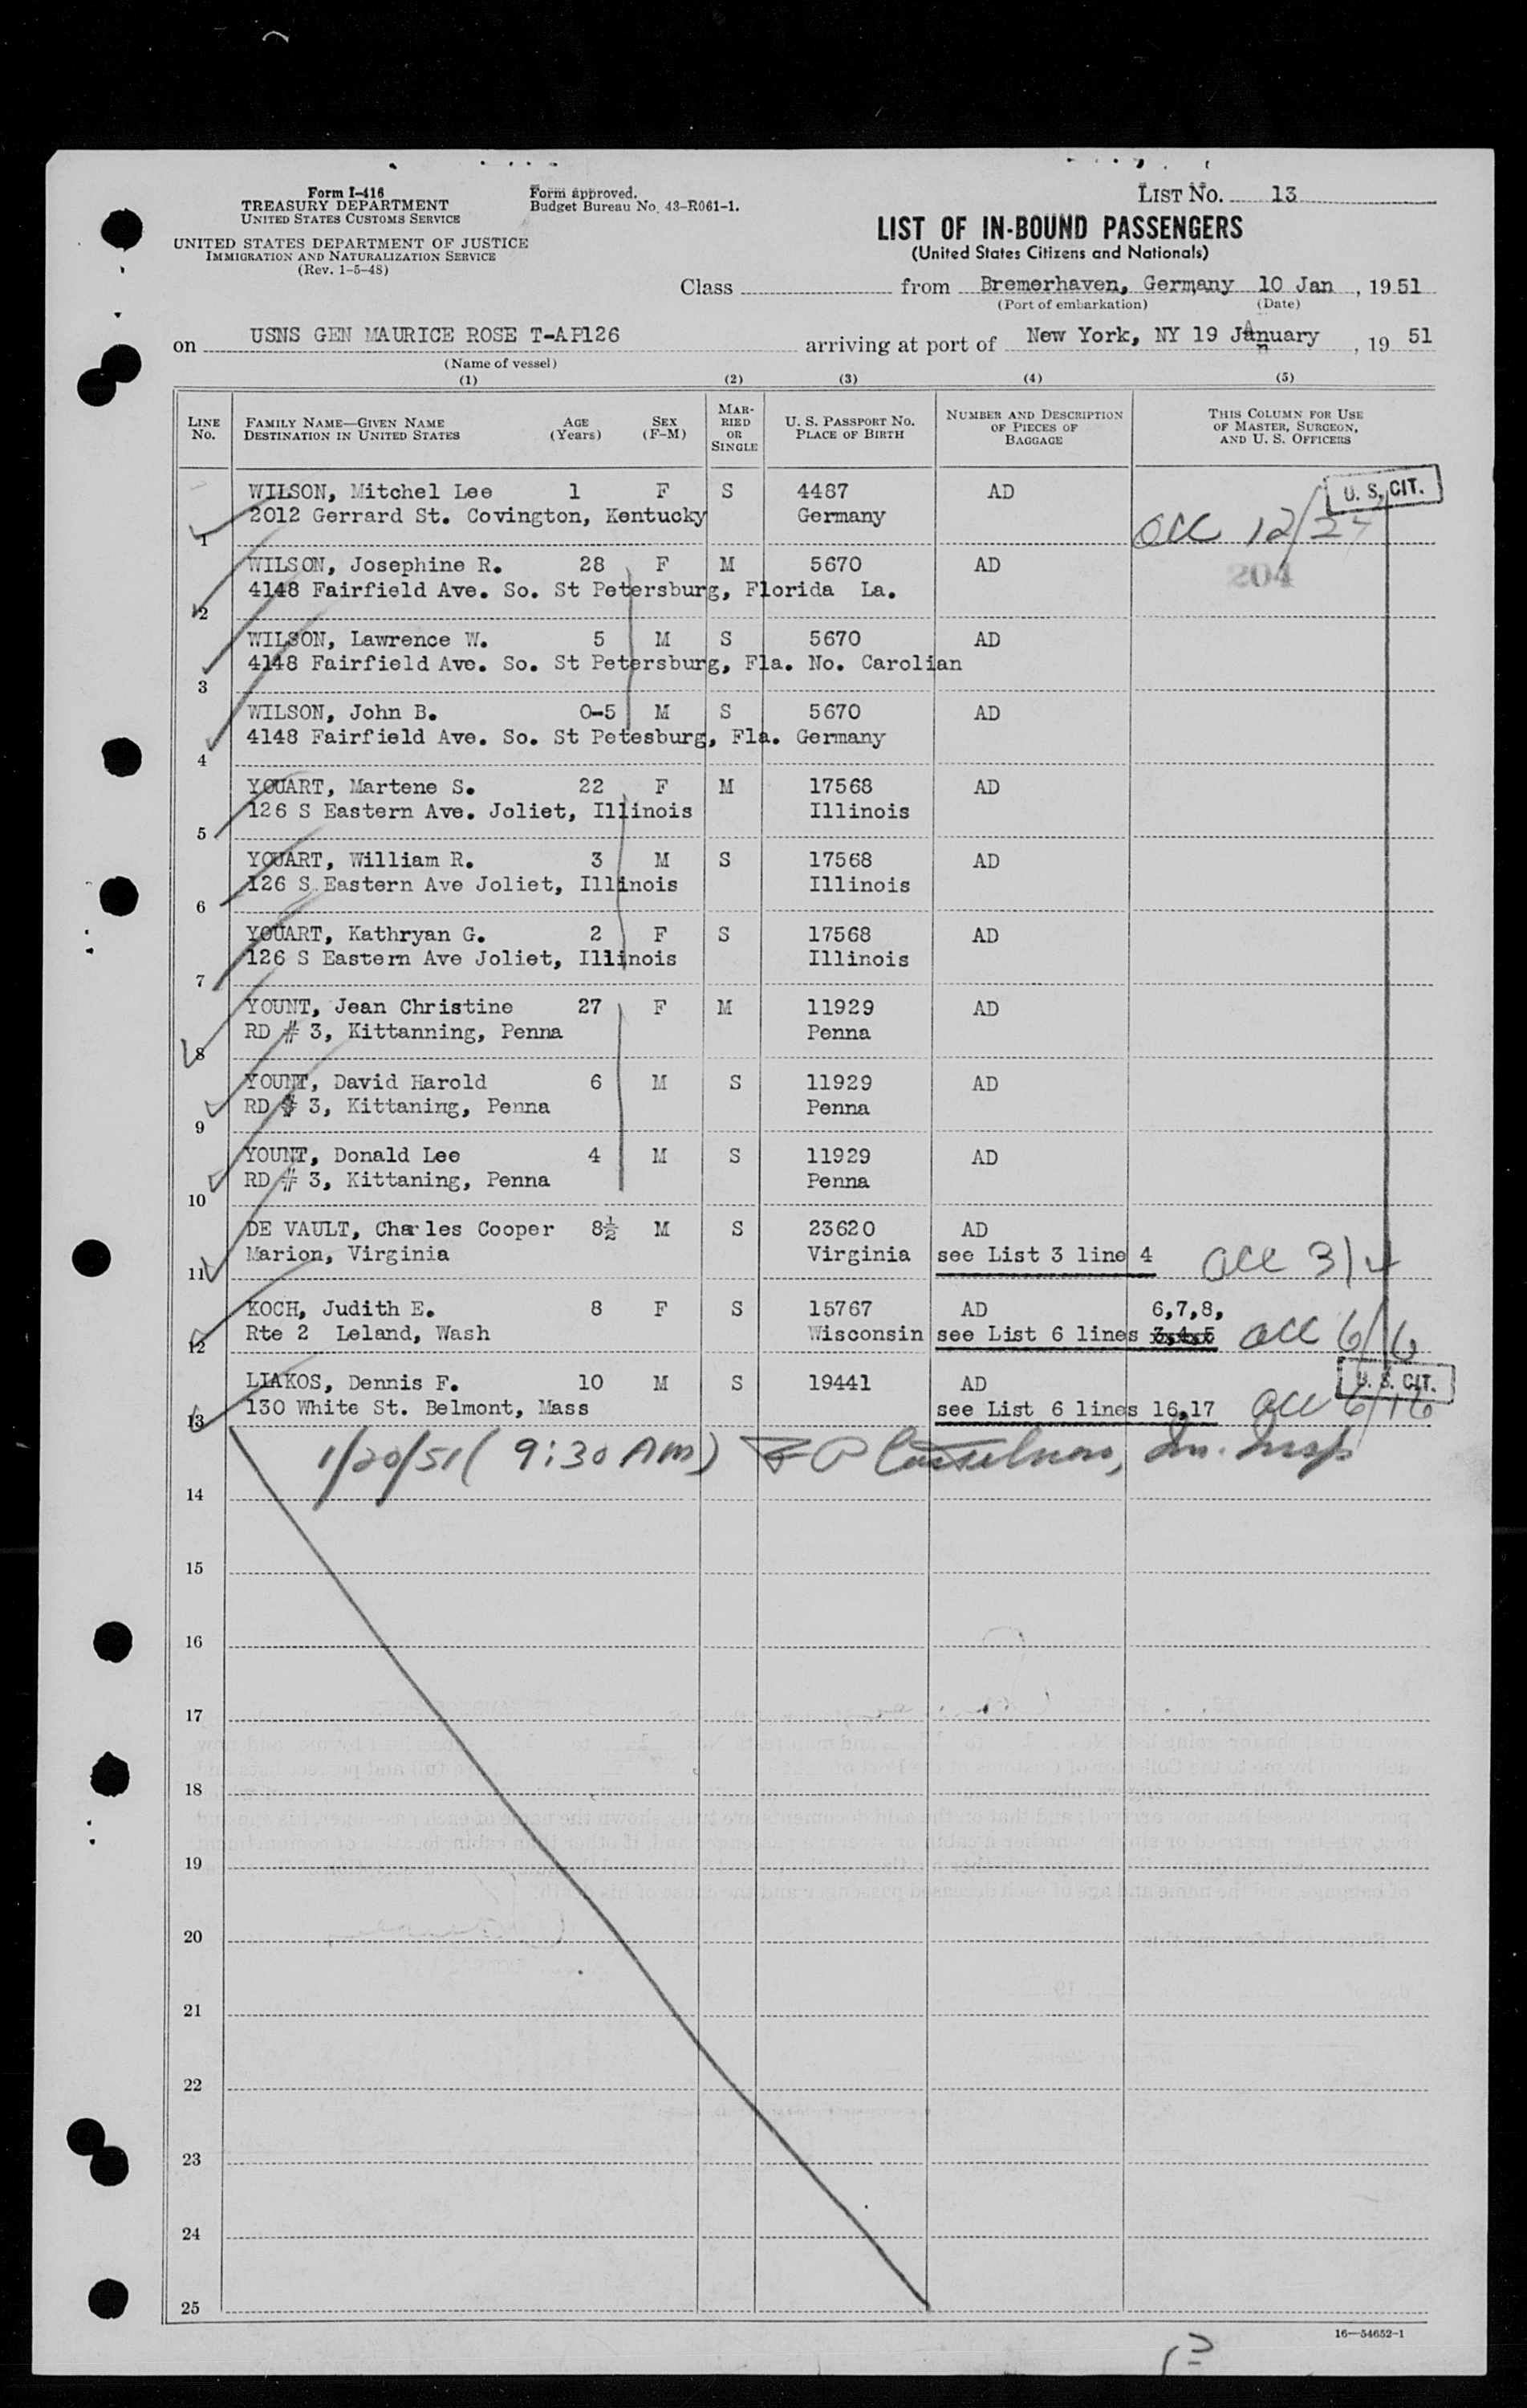 Form I-416
TREASURY DEPARTMENT
UNITED STATES CUSTOMS SERVICE
UNITED STATES DEPARTMENT OF JUSTICE
IMMIGRATION AND NATURALIZATION SERVICE
(Rev. 1-5-48)
Form approved.
Budget Bureau No. 43-R061-1.
LIST NO. 13
LIST OF IN-BOUND PASSENGERS
(United States Citizens and Nationals)
Class from Bremerhaven, Germany 10 Jan, 1951
(Port of embarkation) (Date)
on USNS GEN MAURICE ROSE T-AP126 arriving at port of New York, NY 19 January, 19 51
(Name of vessel)
(1) (2) (3) (4) (5)
LINE No. FAMILY NAME—GIVEN NAME DESTINATION IN UNITED STATES AGE (Years) SEX (F-M) MARRIED OR SINGLE U. S. PASSPORT NO. PLACE OF BIRTH NUMBER AND DESCRIPTION OF PIECES OF BAGGAGE THIS COLUMN FOR USE OF MASTER, SURGEON, AND U. S. OFFICERS
WILSON, Mitchel Lee 1 F S 4487 AD U. S. CIT.
2012 Gerrard St. Covington, Kentucky Germany
1
WILSON, Josephine R. 28 F M 5670 AD 204
4148 Fairfield Ave. So. St Petersburg, Florida La.
2
WILSON, Lawrence W. 5 M S 5670 AD
4148 Fairfield Ave. So. St Petersburg, Fla. No. Carolian
3
WILSON, John B. 0-5 M S 5670 AD
4148 Fairfield Ave. So. St Petesburg, Fla. Germany
4
YOUART, Martene S. 22 F M 17568 AD
126 S Eastern Ave. Joliet, Illinois Illinois
5
YOUART, William R. 3 M S 17568 AD
126 S. Eastern Ave Joliet, Illinois Illinois
6
YOUART, Kathryan G. 2 F S 17568 AD
126 S Eastern Ave Joliet, Illinois Illinois
7
YOUNT, Jean Christine 27 F M 11929 AD
RD # 3, Kittanning, Penna Penna
8
YOUNT, David Harold 6 M S 11929 AD
RD # 3, Kittaning, Penna Penna
9
YOUNT, Donald Lee 4 M S 11929 AD
RD # 3, Kittaning, Penna Penna
10
DE VAULT, Charles Cooper 8½ M S 23620 AD
Marion, Virginia Virginia see List 3 line 4 acc 3/4
11
KOCH, Judith E. 8 F S 15767 AD 6,7,8,
Rte 2 Leland, Wash Wisconsin see List 6 lines 3,4,5 acc 6/6
12
LIAKOS, Dennis F. 10 M S 19441 AD U. S. CIT.
130 White St. Belmont, Mass see List 6 lines 16,17 acc 6/16
13
1/20/51 (9:30 AM) Im. Insp
14
15
16
17
18
19
20
21
22
23
24
25
16—54652-1